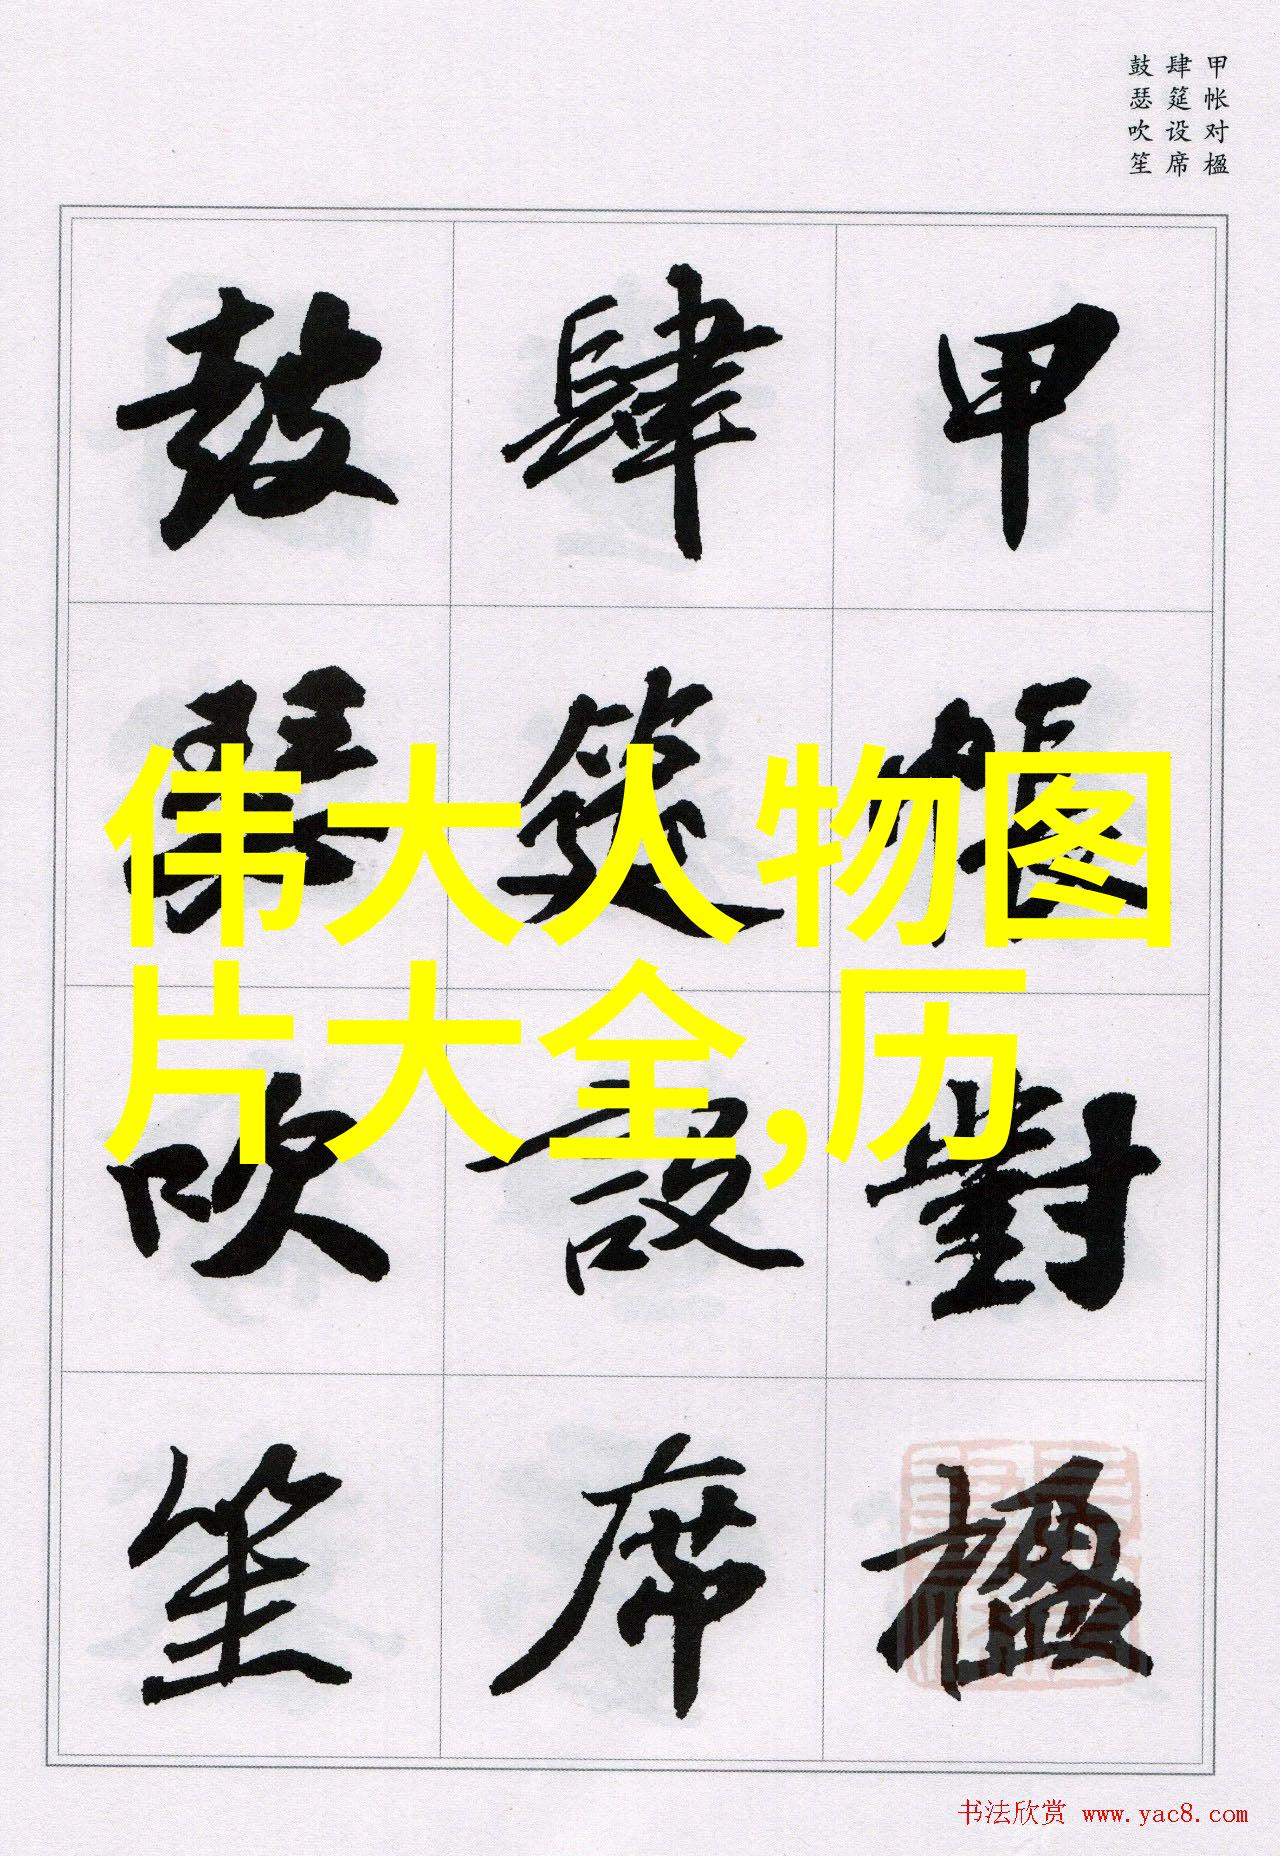 甲帐对楹
肆筵设席
鼓瑟吹笙
甲帳對楹
肆筵設席
鼓瑟吹笙
伟大人物图
片大全,历
书法欣赏 www.yac8.com